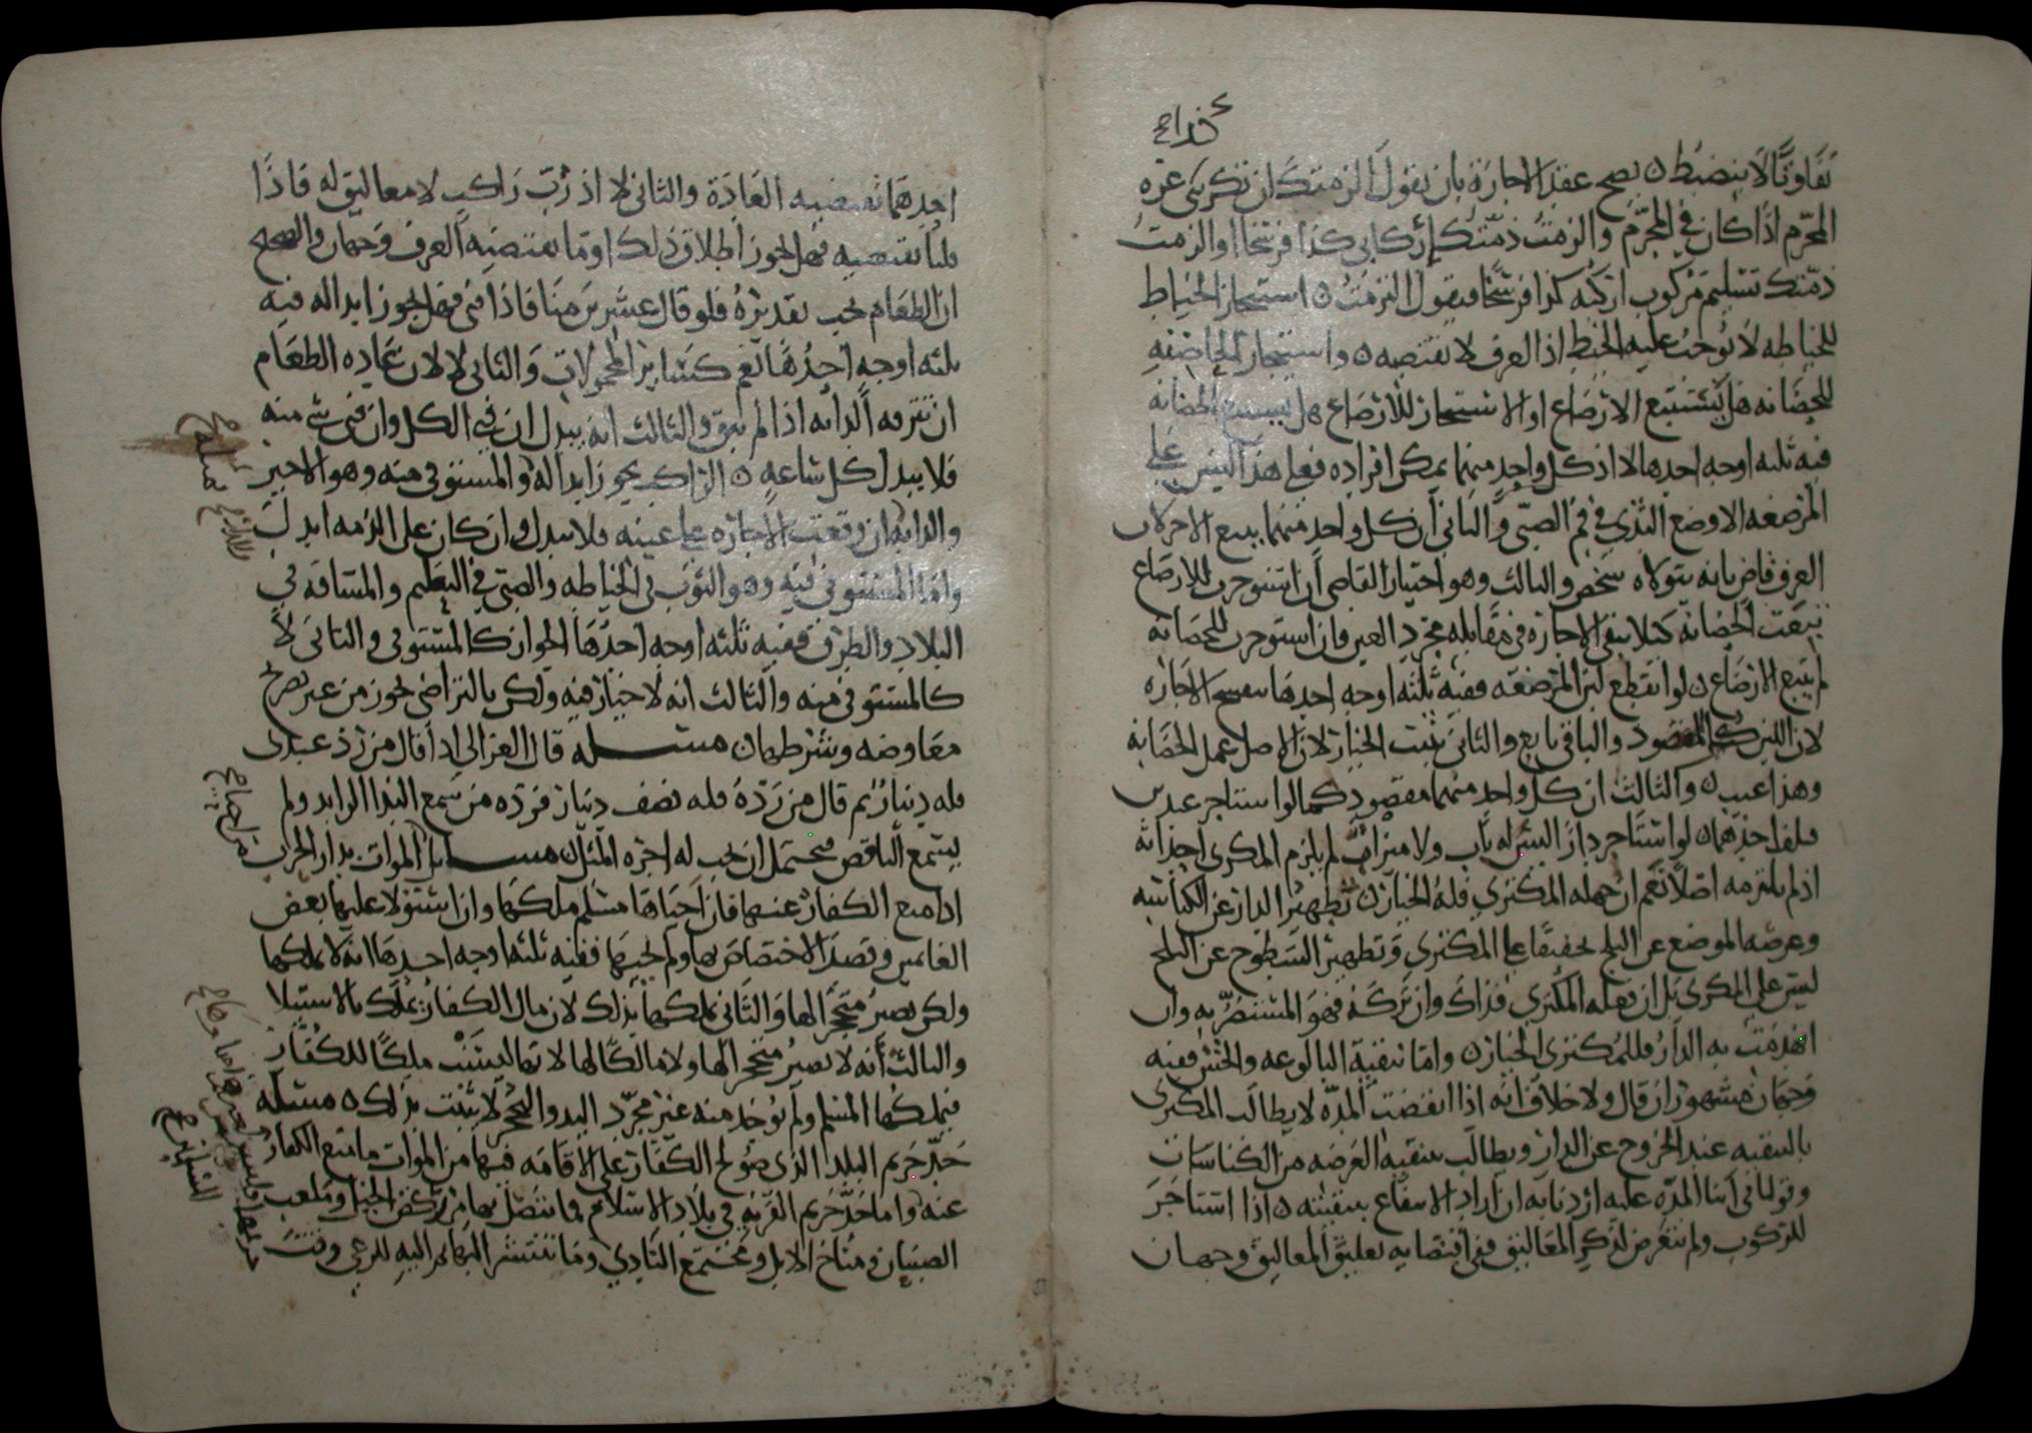 تفاوتا لا ينضبط ٥ يصح عقد الاجارة بان يقول الزمتك ان تكريني غرة
المحرم اذا كان في المحرم والزمت ذمتك اركابي كذا فرسخا او الزمت
ذمتك تسليم مركوب اركبه كذا فرسخا فيقول التزمت ٥ استيجار الخياط
للخياطه لا يوجب عليه الخيط اذ العرف لا يقتضيه ٥ واستيجار الحاضنه
للحضانه هل يستتبع الارضاع او الاستيجار للارضاع هل يستتبع الحضانه
فيه ثلثه اوجه احدها لا اذ كل واحد منهما يمكن افراده فعلى هذا ليس على
المرضعه الا وضع الثدي في فم الصبي والثاني ان كل واحد منهما يتبع الاخر لان
العرف قاض بانه يتولاه شخص والثالث وهو اختيار القاضي ان استوجرت للارضاع
تبعت الحضانة كيلا تبقى الاجارة في مقابله مجرد العين فان استوجرت للحضانه
لم يتبع الارضاع ٥ لو انقطع لبن المرضعه ففيه ثلثه اوجه احدها تنفسخ الاجاره
لان اللبن المقصود والباقي تابع والثاني يثبت الخيار لان الاصل عمل الحضانه
وهذا عيب ٥ والثالث ان كل واحد منهما مقصود كما لو استاجر عبدين
فتلف احدهما ٥ لو استاجر دارا ليس له باب ولا ميزاب لم يلزم المكري احداثه
اذ لم يلتزمه اصلا نعم ان جهله المكتري فله الخيار ٥ تطهير الدار عن الكناسه
وعرصه الموضع عن الثلج تخفيفا على المكتري وتطهير السطوح عن الثلج
ليس على المكري بل ان فعله المكري فذاك وان تركه فهو المستضر به وان
انهدمت به الدار فللمكتري الخيار ٥ واما تنقية البالوعه والحش ففيه
وجهان مشهوران قال ولا خلاف انه اذا انقضت المدة لا يطالب المكري
بالتنقيه عند الخروج عن الدار ويطالب بتنقية العرصه من الكناسات
وقولنا في اثنا المدة عليه اردنا به ان اراد الانتفاع بتنقيته ٥ اذا استاجر
للركوب ولم يتعرض لذكر المعاليق ففي اقتضايه تعليق المعاليق وجهان
احدهما تقتضيه العادة والثاني لا اذ رب راكب لا معاليق له فاذا
قلنا تقتضيه فهل يجوز اطلاق ذلك او ما يقتضيه العرف وجهان والصحيح
ان الطعام يجب تقديره فلو قال عشرين منا فاذا فني فهل يجوز ابداله فيه
ثلثه اوجه احدها نعم كساير المحمولات والثاني لا لان عادة الطعام
ان تترفه الدابه اذا لم يبق والثالث انه يبدل ان فني الكل وان فني شي منه
فلا يبدل كل ساعه ٥ الراكب يجوز ابداله والمستوفى منه وهو الاجير
والدابه ان وقعت الاجاره على عينه فلا يبدل وان كان على الذمه ابدلت
واما المستوفى فيه وهو الثوب في الخياطه والصبي في التعليم والمسافه في
البلاد والطرق ففيه ثلثه اوجه احدها الجواز كالمستوفي والثاني لا
كالمستوفى منه والثالث انه لا خيار فيه ولكن بالتراضي يجوز من غير تصريح
معاوضه وشرطهان مسله قال الغزالي اذا قال من رد عبدي
فله دينار ثم قال من رده فله نصف دينار فرده من سمع الندا الزايد ولم
يسمع الناقص فيحتمل ان يجب له اجرة المثل ٥ مسايل الموات بدار الحرب
اذا منع الكفار عنها فان احياها مسلم ملكها وان استولا عليها بعض
الغانمين وقصد الاختصاص بها ولم يحيها ففيه ثلثه اوجه احدها انه لا يملكها
ولكن يصير متحجرا لها والثاني يملكها بذلك لان مال الكفار يملك بالاستيلا
والثالث انه لا يصير متحجرا لها ولا مالكا لها لانها ليست ملكا للكفار
فيملكها المسلم ولم يوجد منه غير مجرد اليد والتحجر لا يثبت بذلك ٥ مسئله
حد حريم البلد الذي صولح الكفار على الاقامه فيها من الموات ما منع الكفار
عنه واما حد حريم القريه في بلاد الاسلام فما يتصل بها من مركض الخيل وملعب
الصبيان ومناخ الابل ومجتمع النادي وما تنتشر البهايم اليه للرعي وقت